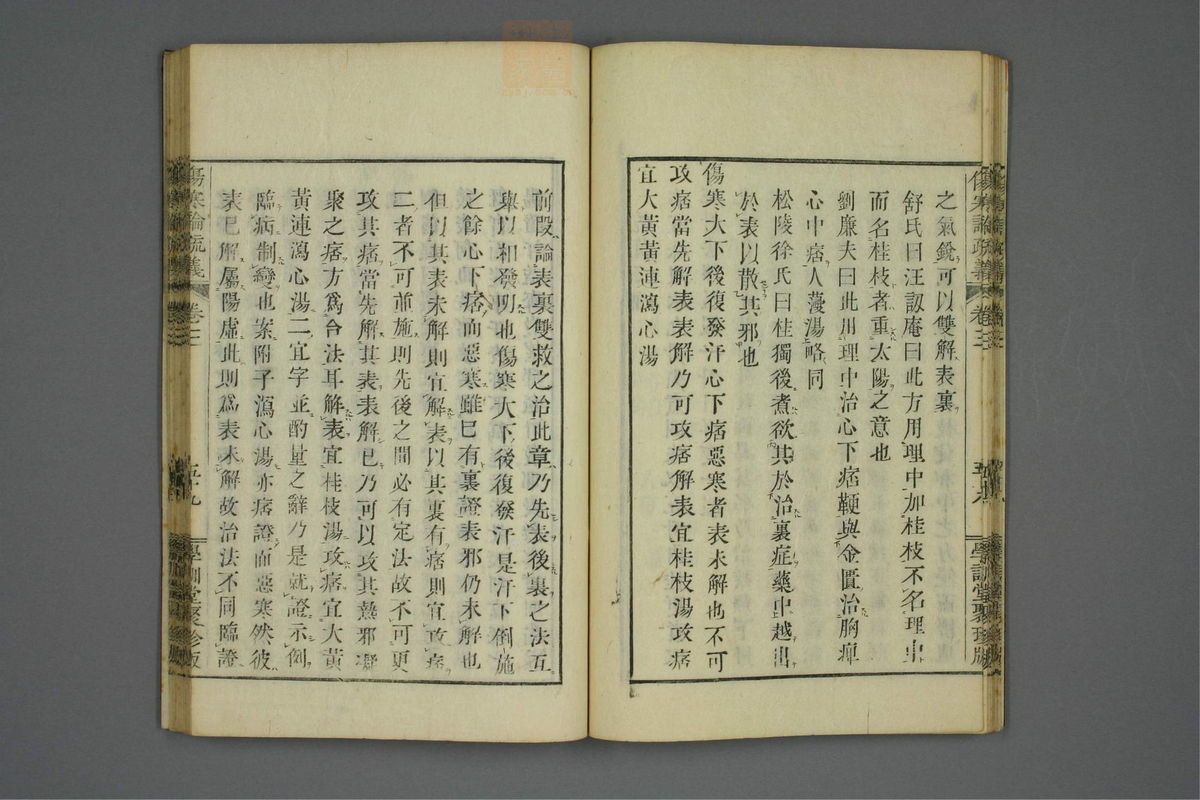 傷寒論疏義 卷三 五十九 學訓堂聚珍版
之氣銳可以雙解表裏
舒氏曰汪訒庵曰此方用理中加桂枝不名理中
而名桂枝者重太陽之意也
劉廉夫曰此用理中治心下痞鞕與金匱治胸痺
心中痞人薓湯略同
松陵徐氏曰桂獨後煮欲其於治裏症藥中越出
於表以散其邪也
傷寒大下後復發汗心下痞惡寒者表未解也不可
攻痞當先解表表解乃可攻痞解表宜桂枝湯攻痞
宜大黃黃連瀉心湯
前段論表裏雙救之治此章乃先表後裏之法互
擧以相發明也傷寒大下後復發汗是汗下倒施
之餘心下痞而惡寒雖巳有裏證表邪仍未解也
但以其表未解則宜解表以其裏有痞則宜攻痞
二者不可並施則先後之間必有定法故不可更
攻其痞當先解其表表解巳乃可以攻其熱邪凝
聚之痞方爲合法耳解表宜桂枝湯攻痞宜大黃
黃連瀉心湯二宜字並酌量之辭乃是就證示例
臨病制變也案附子瀉心湯亦痞證而惡寒然彼
表巳解屬陽虛此則爲表未解故治法不同臨證
傷寒論疏義 卷三 五十九 學訓堂聚珍版